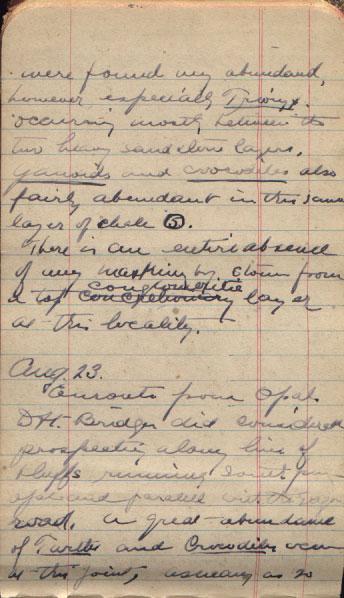 were found very abundant,
however, especially Trionyx.
occurring mostly between the
two heavy sandstone layers.
Ganoids and crocodiles also
fairly abundant in this same
layer of shale 5.
There is an entire absence
of any washing down from
conglomeritic
a top concretionary layer
at this locality.
Aug. 23.
Enroute from Opal
D.H. Bridger did considerable
prospecting along line of
bluffs running
and parallel with the wagon
road. A great abundance
of Turtles and Crocodiles occur
at this point, usually as so